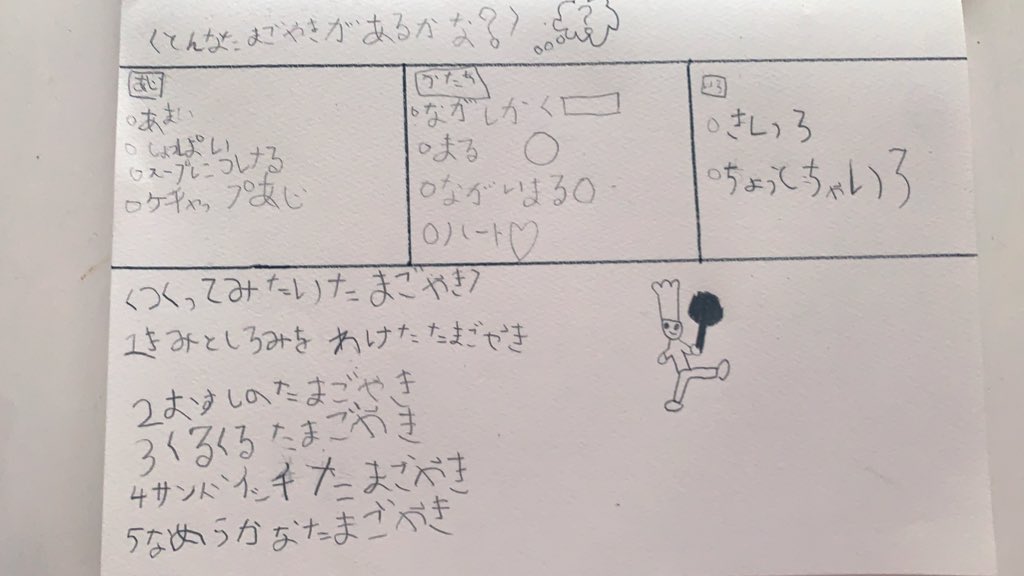 〈どんなたまごやきがあるかな?〉
あじ
○あまい
○しょぱい
○スープにつける
○ケチャップあじ
かたち
○ながしかく
○まる
○ながいまる
○ハート
いろ
○きいろ
○ちょっとちゃいろ
〈つくってみたいたまごやき〉
1きみとしろみをわけたたまごやき
2おすしのたまごやき
3くるくるたまごやき
4サンドイッチたまごやき
5なめらかなたまごやき